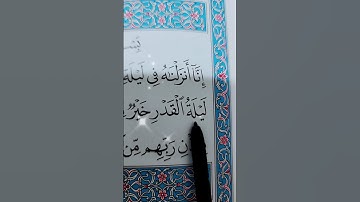 بِسْـ
إِنَّا أَنزَلْنَـٰهُ فِي لَيْلَةِ
لَيْلَةُ الْقَدْرِ خَيْرٌ
رَبِّهِم مِّن